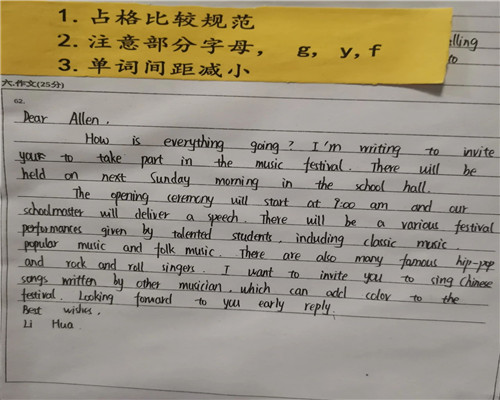 1. 占格比较规范
2. 注意部分字母， g，y,f
3. 单词间距减小
elling
to
六.作文(25分)
62.
Dear Allen,
How is everything going? I'm writing to invite
you to take part in the music festival. There will be
held on next Sunday morning in the school hall.
The opening ceremony will start at 9:00 am and our
schoolmaster will deliver a speech. There will be a various festival
performances given by talented students, including classic music,
popular music and folk music. There are also many famous hip-pop
and rock and roll singers. I want to invite you to sing Chinese
songs written by other musician, which can add color to the
festival. Looking forward to you early reply.
Best wishes,
Li Hua